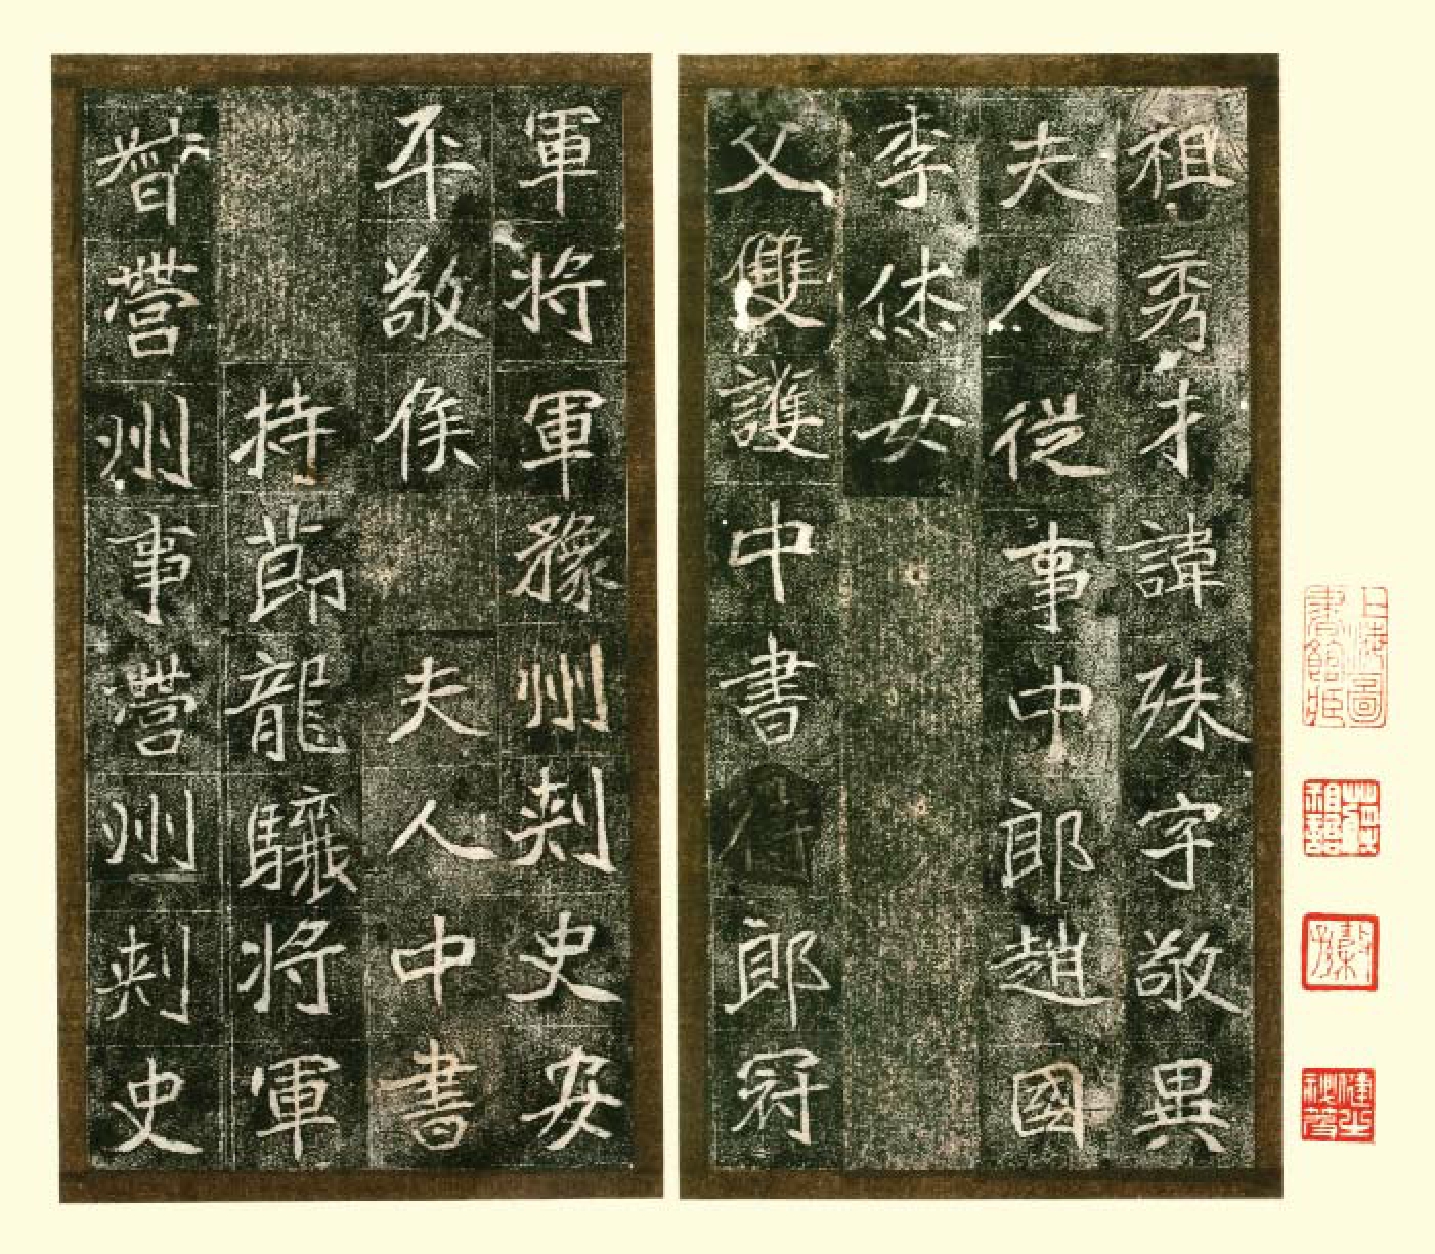 祖秀才諱殊字敬異
夫人從事中郎趙國
李烋女
父雙護中書侍郎冠
軍將軍豫州刾史安
平敬侯 夫人中書
持節龍驤將軍
督營州事營州刾史
上海圖書館藏